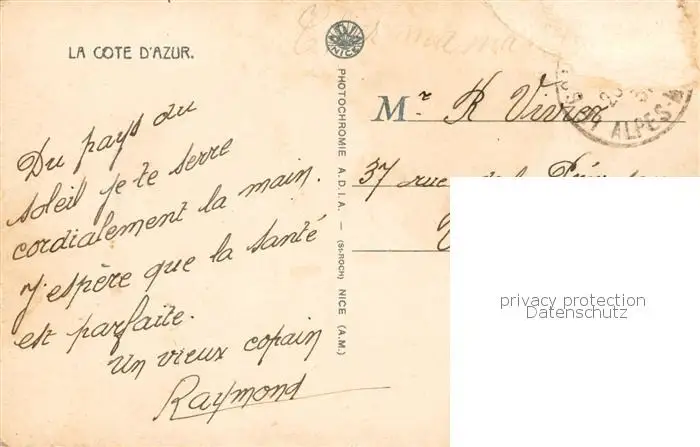 LA COTE D'AZUR.
ADIA
NICE
Du pays du
soleil je te serre
cordialement la main.
J'espère que la santé
est parfaite.
Un vieux copain
Raymond
PHOTOCHROMIE A.D.I.A. — (ST-ROCH) NICE (A.M.)
Mr R Vivier
37 rue de la
ALPES-M
privacy protection
Datenschutz